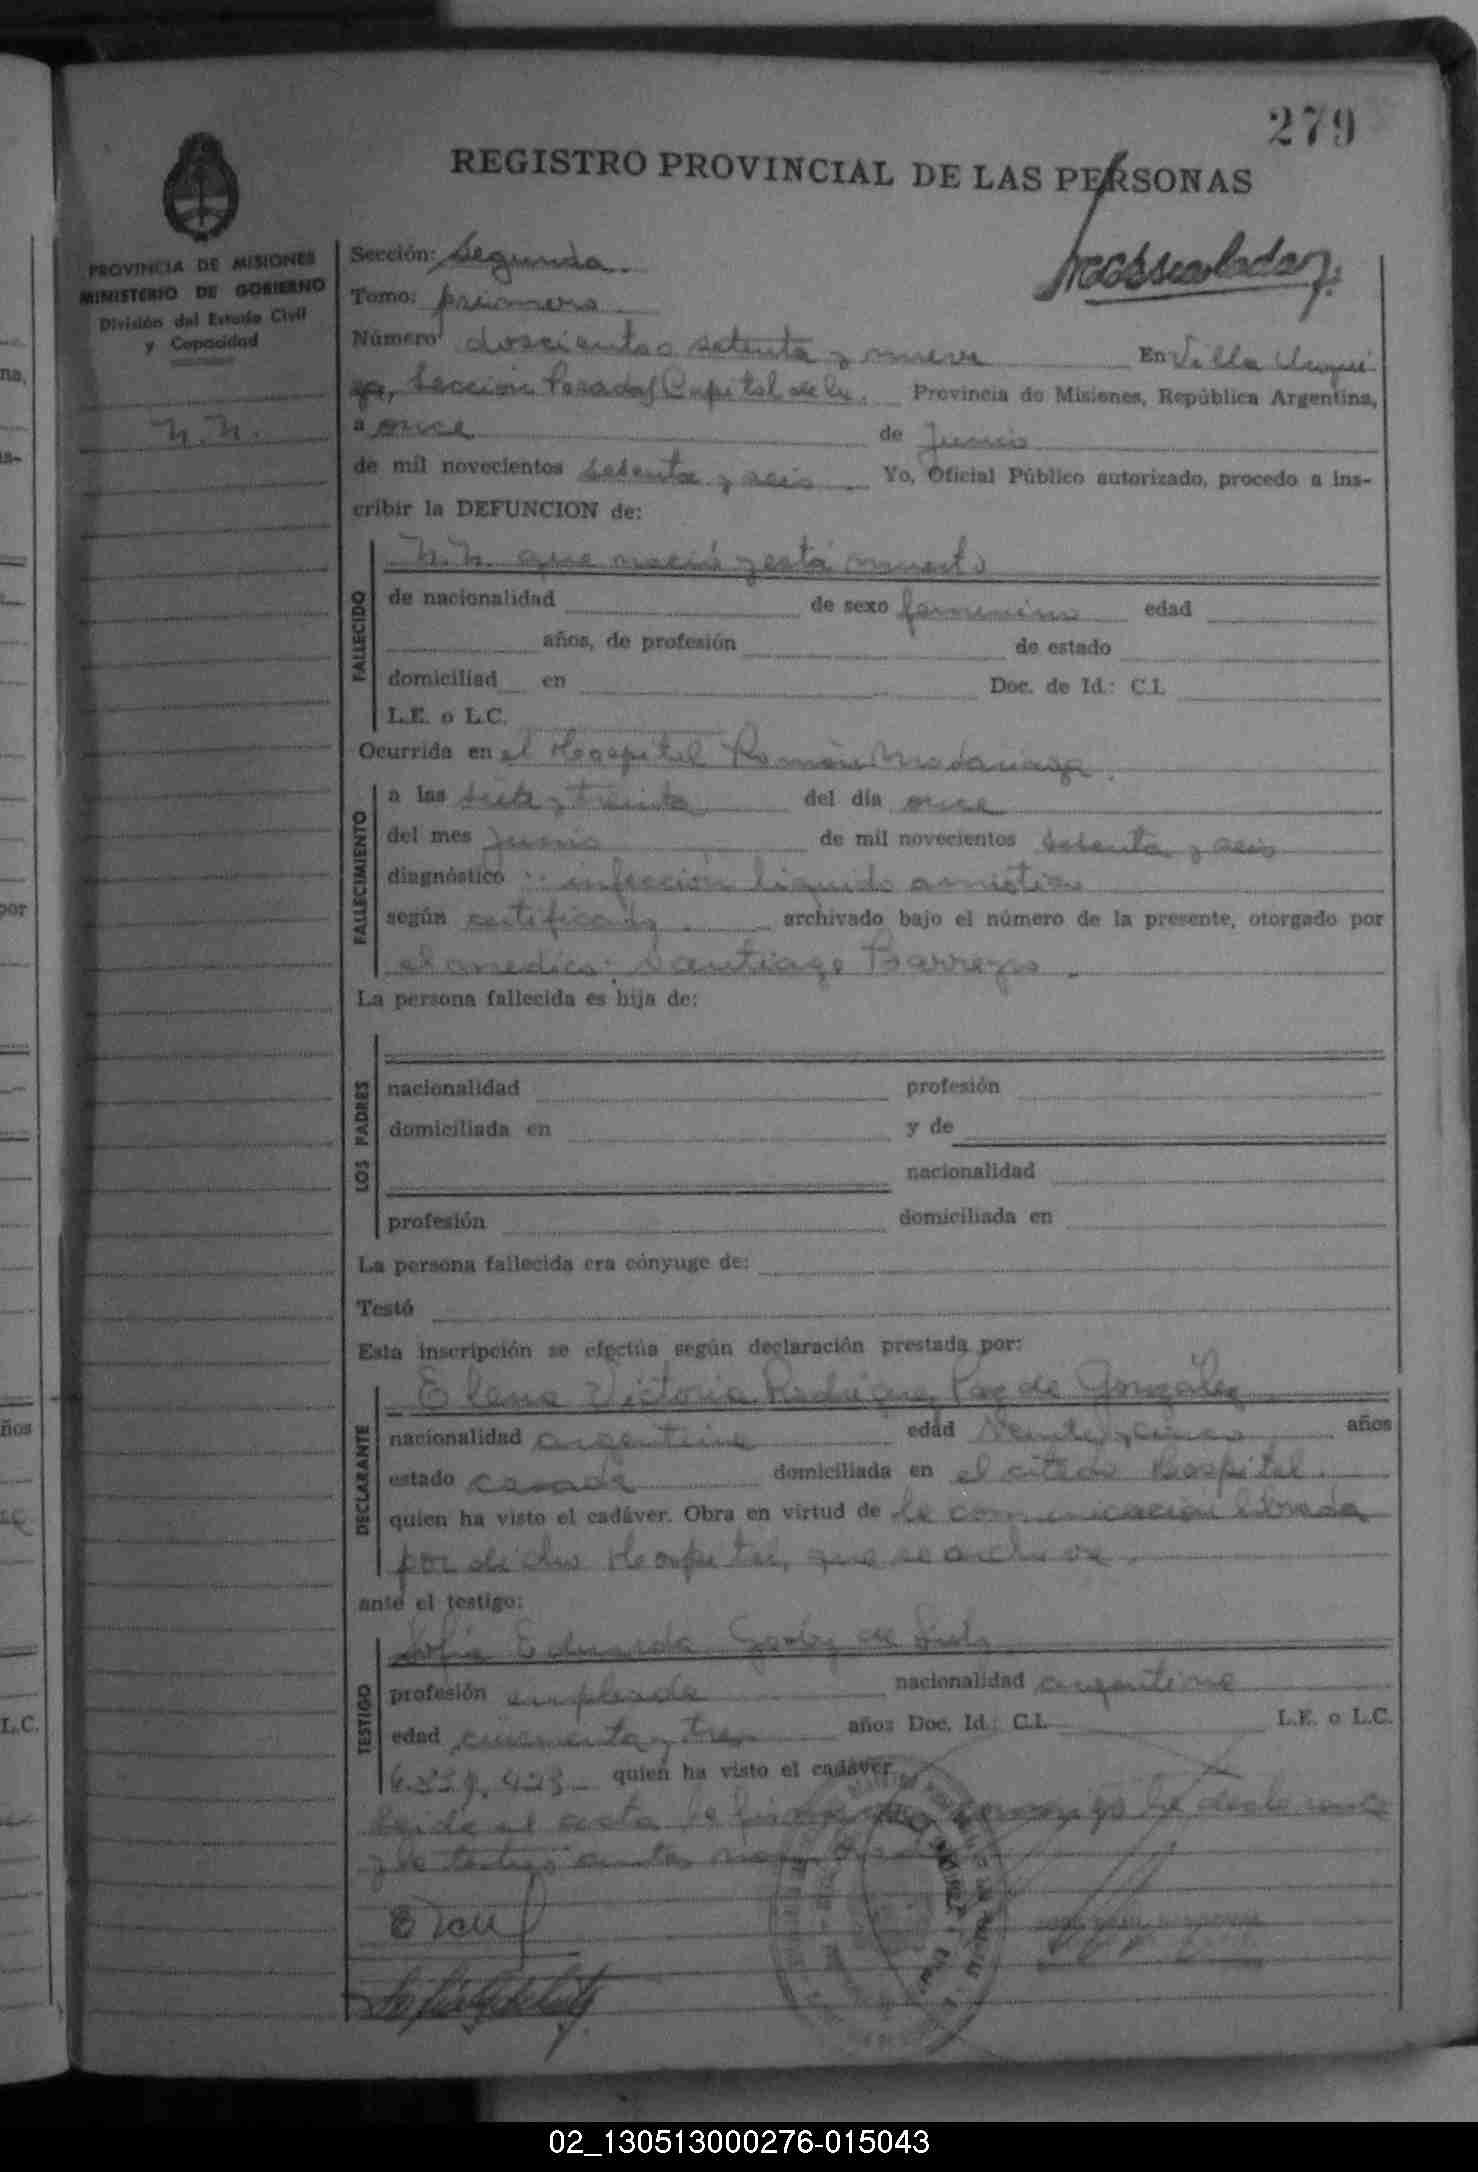 279
REGISTRO PROVINCIAL DE LAS PERSONAS
PROVINCIA DE MISIONES
MINISTERIO DE GOBIERNO
División del Estado Civil
y Capacidad
N.N.
Sección: Segunda.
Tomo: primero
Número doscientos setenta y nueve En Villa Urqui
za, Sección Posadas Capital de la Provincia de Misiones, República Argentina,
a once de Junio
de mil novecientos setenta y seis Yo, Oficial Público autorizado, procedo a ins-
cribir la DEFUNCION de:
FALLECIDO
N.N. que nació y está muerto
de nacionalidad de sexo femenino edad
años, de profesión de estado
domiciliad en Doc. de Id.: C.I.
L.E. o L.C.
Ocurrida en el Hospital Ramón Madariaga.
FALLECIMIENTO
a las siete y treinta del día once
del mes Junio de mil novecientos setenta y seis
diagnóstico infección liquido amniótico
según certificado archivado bajo el número de la presente, otorgado por
el medico: Santiago Barreyro.
La persona fallecida es hija de:
LOS PADRES
nacionalidad profesión
domiciliada en y de
nacionalidad
profesión domiciliada en
La persona fallecida era cónyuge de:
Testó
Esta inscripción se efectúa según declaración prestada por:
DECLARANTE
Elena Victoria Rodriguez Paz de González
nacionalidad argentina edad veinte y cinco años
estado casada domiciliada en el citado Hospital.
quien ha visto el cadáver. Obra en virtud de la comunicación librada
por dicho Hospital, que se archiva.
ante el testigo:
TESTIGO
Sofia Eduarda de
profesión empleada nacionalidad argentina
edad cincuenta y tres años Doc. Id.: C.I. L.E. o L.C.
quien ha visto el cadáver
Leida el acta la la declarante
y la testigo
02_130513000276-015043